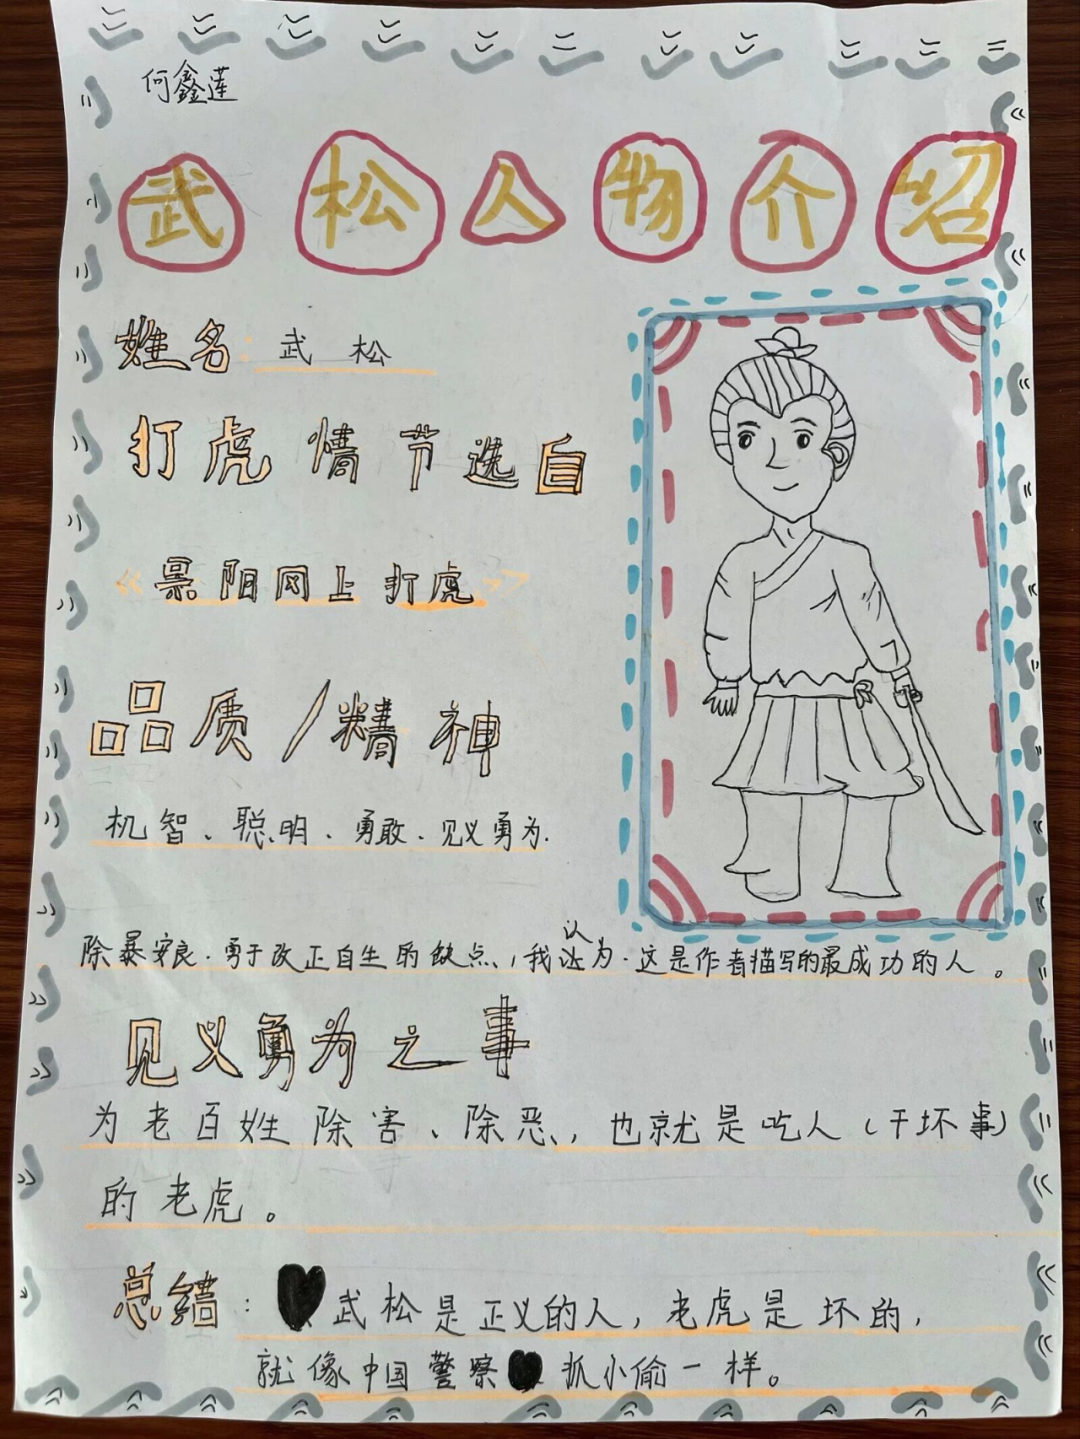 何鑫莲
武松人物介绍
姓名:武松
打虎情节选自
《景阳冈上打虎》
品质/精神
机智、聪明、勇敢、见义勇为.
除暴安良.勇于改正自生的缺点,我认为.这是作者描写的最成功的人。
见义勇为之事
为老百姓除害、除恶,也就是吃人(干坏事)
的老虎。
总结:武松是正义的人,老虎是坏的,
就像中国警察抓小偷一样。